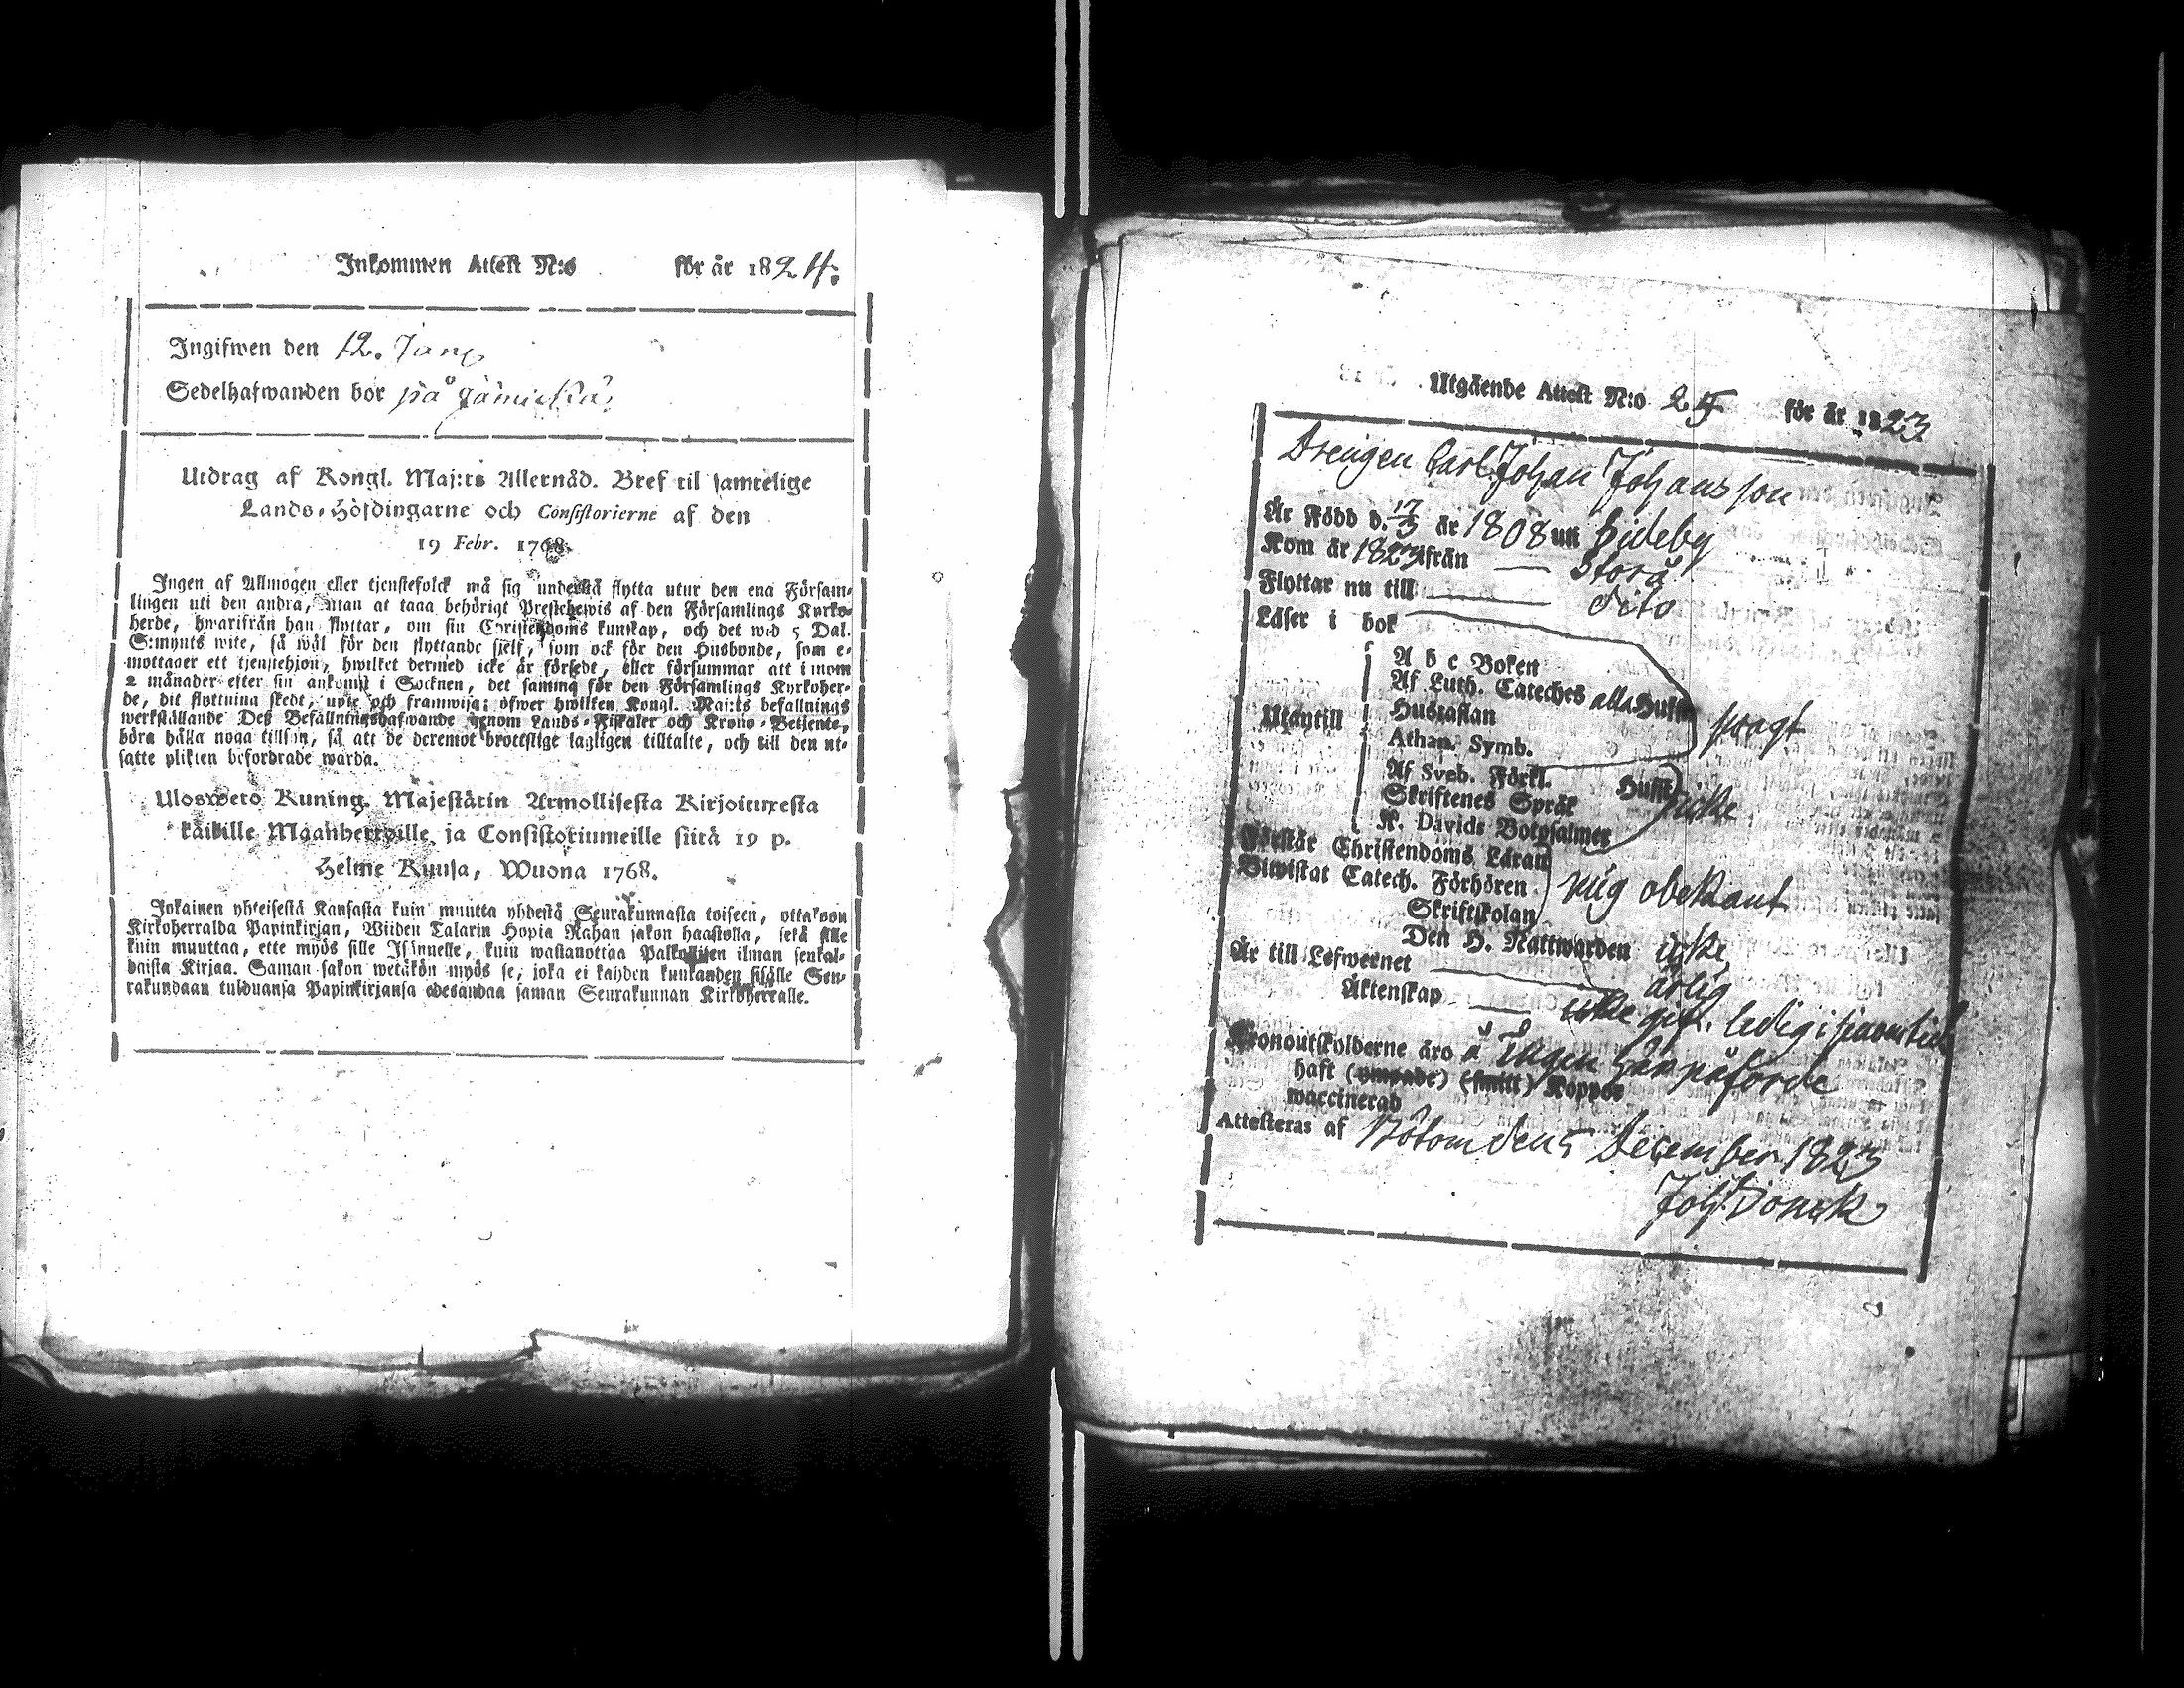 Inkommen Attest N:o för år 1824.
Ingifwen den 12. Janu
Sedelhafwanden bor på
Utdrag af Kongl. Maj:ts Allernåd. Bref til samtelige
Lands-Höfdingarne och Consistorierne af den
19 Febr. 1768.
Ingen af Allmogen eller tjenstefolck må sig understå flytta utur den ena Försam-
lingen uti den andra, utan at taga behörigt Prestebewis af den Församlings Kyrko-
herde, hwarifrån han flyttar, om sin Christendoms kunskap, och det wid 5 Dal.
S:mynts wite, så wäl för den flyttande sjelf, som ock för den Husbonde, som e-
mottager ett tjenstehjon, hwilket dermed icke är försedt, eller försummar att i inom
2 månader efter sin ankomst i Socknen, det samma för den Församlings Kyrkoher-
de, dit flyttning skedt, upte och framwisa; öfwer hwilken Kongl. Maj:ts befallnings
werkställande Deß Befallningshafwande genom Lands-Fiskaler och Krono-Betjente,
böra hålla noga tillsyn, så att de deremot brottslige lagligen tilltalte, och till den ut-
satte plikten befordrade warda.
Uloswero Kuning. Majestätin Armollisesta Kirjoituresta
kaikille Maanherroille ja Consistoriumeille siitä 19 p.
Helme Kuusa, Wuona 1768.
Jokainen yhteisestä Kansasta kuin muutta yhdestä Seurakunnasta toiseen, ottakoon
Kirkoherralda Papinkirjan, Wiiden Talarin Hopia Rahan sakon haastolla, sekä sille
kuin muuttaa, ette myös sille Isännelle, kuin wastanottaa Palkollisen ilman senkal-
daista Kirjaa. Saman sakon wetäkön myös se, joka ei kahden kuukauden sisälle Seu-
rakundaan tulduansa Papinkirjansa edesandaa saman Seurakunnan Kirkoherralle.
Utgående Attest N:o 25 för år 1823
Drengen Carl Johan Johansson
Är Född d. 17/3 år 1808 uti Sideby
Kom år 1823 ifrån — Storå
Flyttar nu till — dito
Läser i bok
A b c Boken
Af Luth. Cateches alla Hufst
Utantill Hustaflan svagt
Athan. Symb.
Af Sveb. Förkl. Hufst
Skriftenes Språk icke
K. Davids Botpsalmer
Förstår Christendoms Läran
Biwistat Catech. Förhören mig obekant
Skriftskolan
Den H. Nattwarden icke
Är till Lefwernet — ärlig
Äktenskap — icke gift. ledig i
Kronoutskylderne äro å Ingen här påförde
haft (ympade) (smitt) Koppor
waccinerad
Attesteras af Bötom den 5 December 1823
Joh: